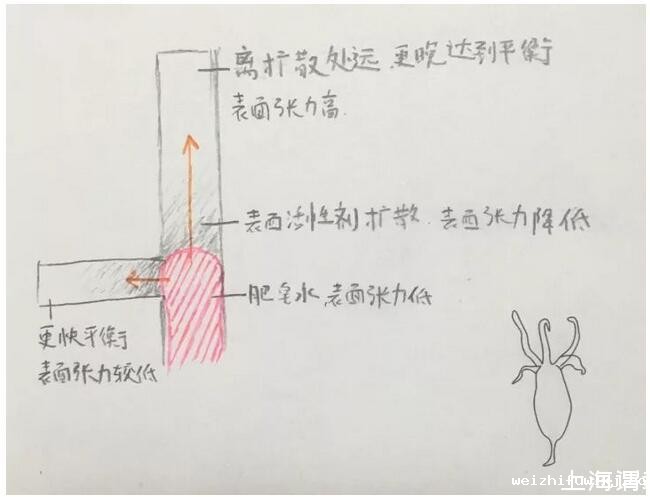 离扩散处远 更晚达到平衡
表面张力高.
表面活性剂扩散. 表面张力降低
肥皂水 表面张力低
更快平衡
表面张力较低